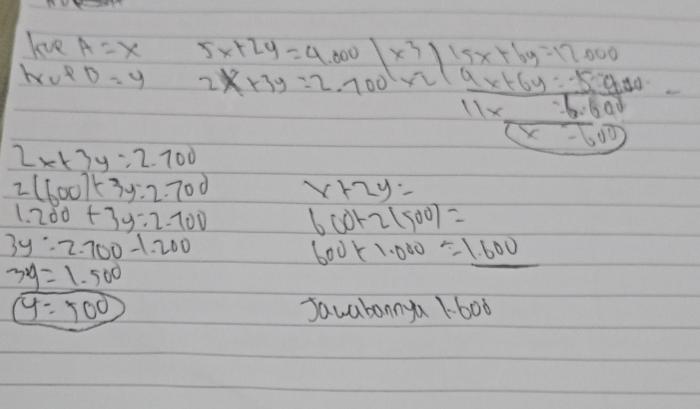 kue A = x 5x+2y = 4.000 | x3 | 15x+6y = 12.000
kue B = y 2x+3y = 2.700 | x2 | 4x+6y = 5.400 -
11x = 6.600
x = 600
2x+3y = 2.700
2(600)+3y = 2.700
1.200 + 3y = 2.700
3y = 2.700 - 1.200
3y = 1.500
y = 500
x+2y =
600+2(500) =
600+1.000 = 1.600
Jawabannya 1.600